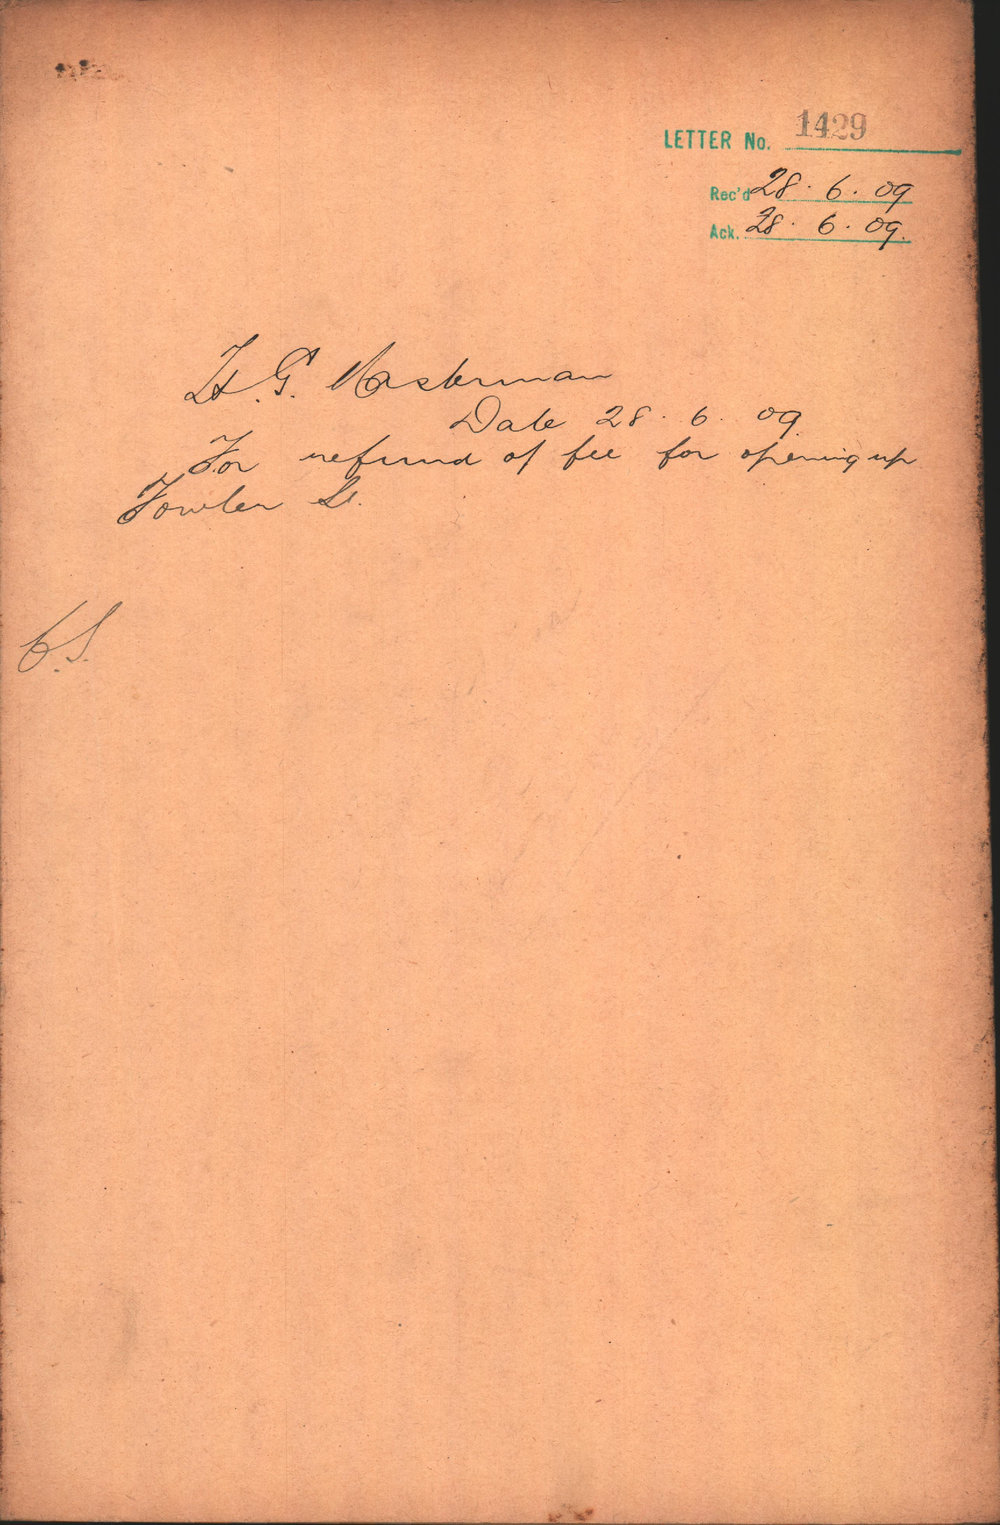 LETTER No. 1429
Rec'd 28. 6. 09
Ack. 28. 6. 09.
H. G. Masterman
Date 28. 6. 09
For refund of fee for opening up
Fowler St.